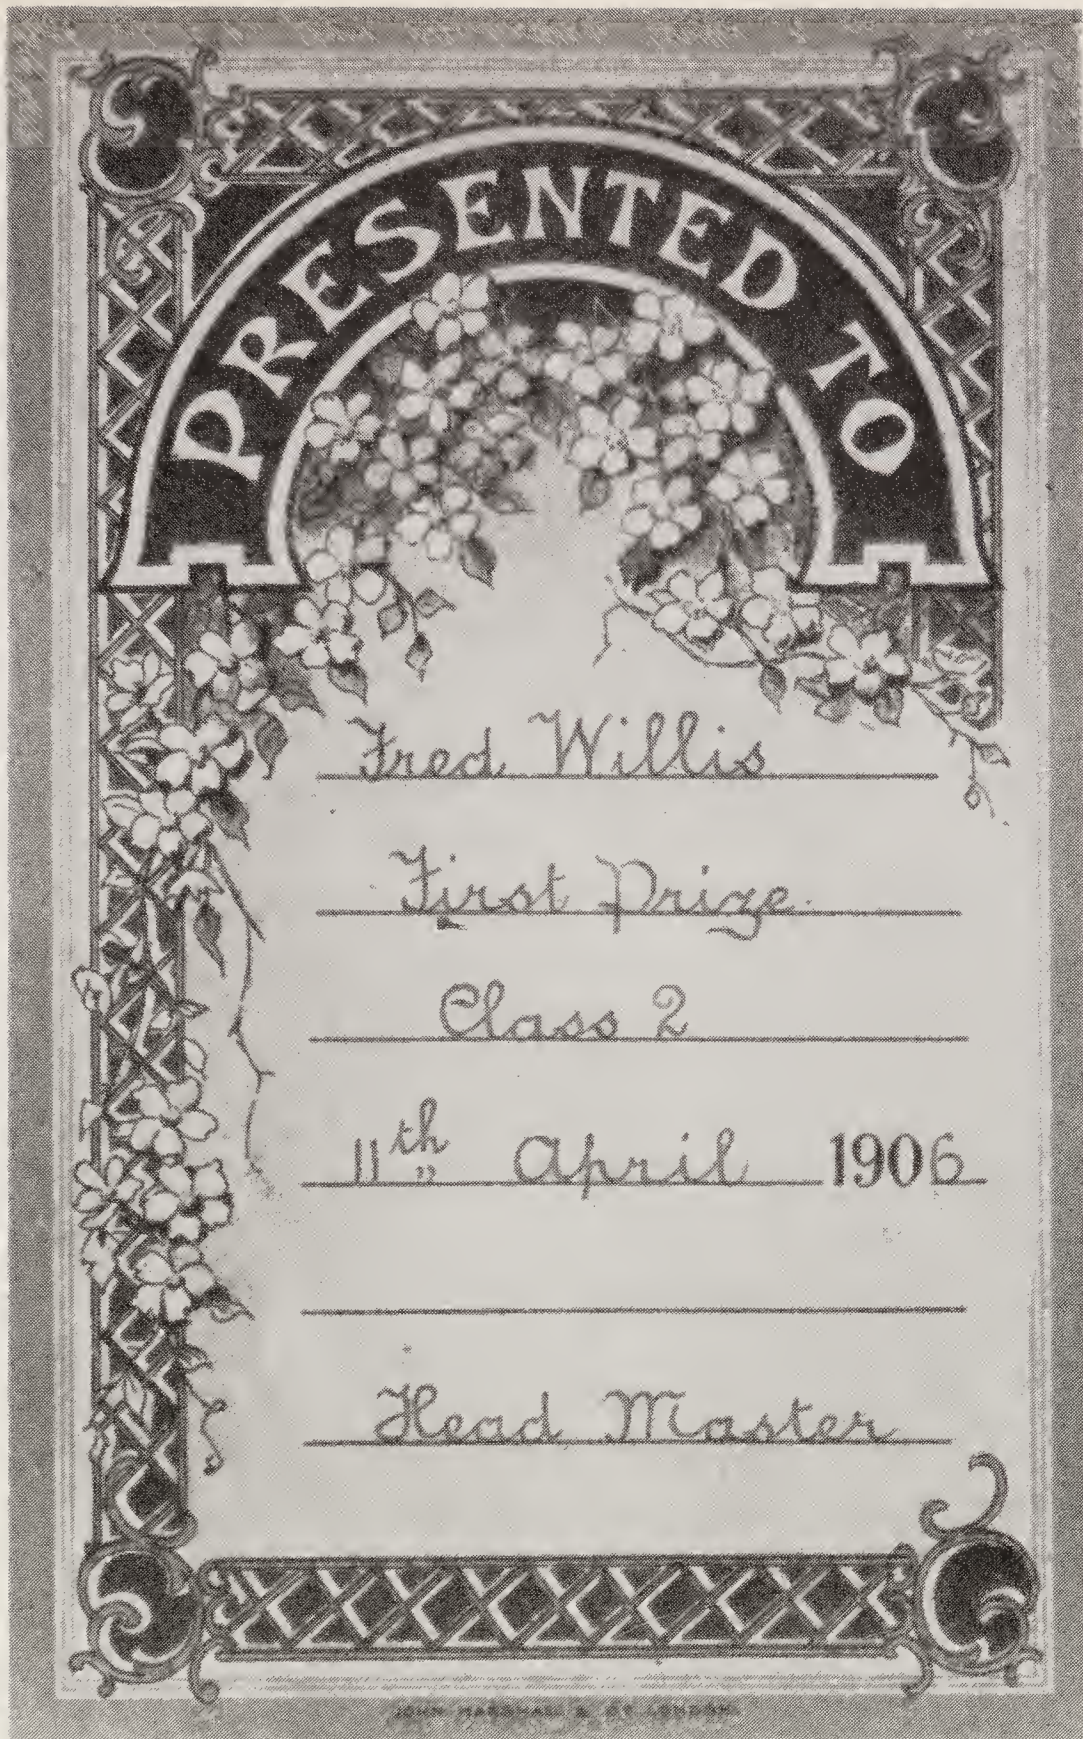 PRESENTED TO
Fred Willis
First Prize.
Class 2
11th April 1906
Head Master
JOHN MARSHALL & Co LONDON.